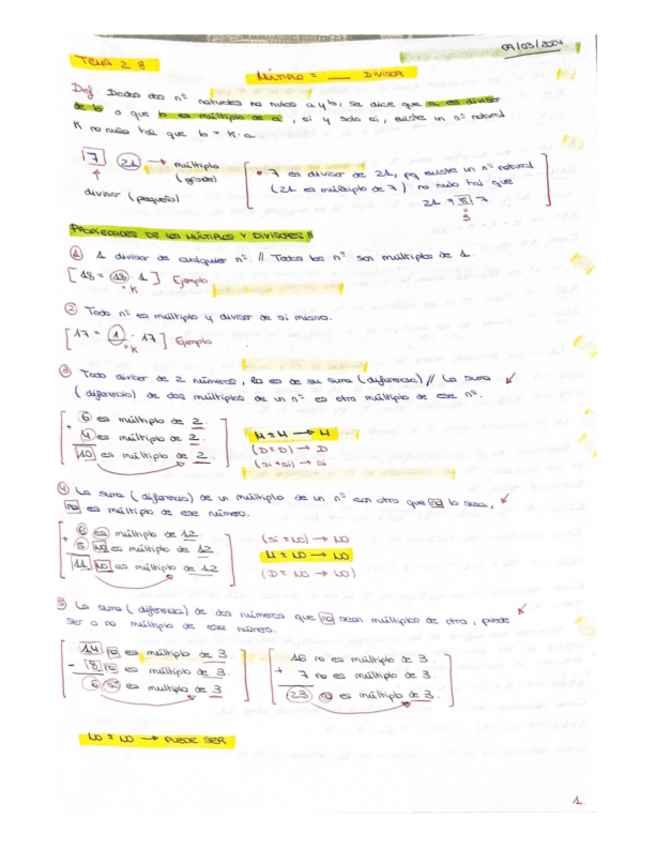 09/03/2024
TEMA 2 8
MÚLTIPLO = ___ DIVISOR
Def Dados dos nº naturales no nulos a y b, se dice que a es divisor
de b o que b es múltiplo de a, si y solo si, existe un nº natural
K no nulo tal que b = K·a.
7 21 → múltiplo
(grande)
↑
divisor (pequeño)
• 7 es divisor de 21, pq existe un nº natural
(21 es múltiplo de 7) no nulo tal que
21 = 7
3
PROPIEDADES DE LOS MÚLTIPLOS Y DIVISORES
① 1 divisor de cualquier nº. // Todos los nº son múltiplos de 1.
[18 = 18 · 1] Ejemplo
= K
② Todo nº es múltiplo y divisor de si mismo.
[17 = 1 · 17] Ejemplo
= K
③ Todo divisor de 2 números, lo es de su suma (diferencia) // La suma
(diferencia) de dos múltiplos de un nº es otro múltiplo de ese nº.
6 es múltiplo de 2.
+ 4 es múltiplo de 2.
10 es múltiplo de 2.
M ± M → M
(D ± D) → D
(si + si) → si
④ La suma (diferencia) de un múltiplo de un nº con otro que no lo sea,
no es múltiplo de ese número.
6 es múltiplo de 12.
+ 5 no es múltiplo de 12
11 no es múltiplo de 12
(si ± NO) → NO
M ± NO → NO
(D ± NO → NO)
5 La suma (diferencia) de dos números que no sean múltiplos de otro, puede
ser o no múltiplo de ese número.
14 no es múltiplo de 3.
- 8 no es múltiplo de 3.
6 si es múltiplo de 3.
16 no es múltiplo de 3.
+ 7 no es múltiplo de 3.
23 no es múltiplo de 3.
NO ± NO → PUEDE SER
1.